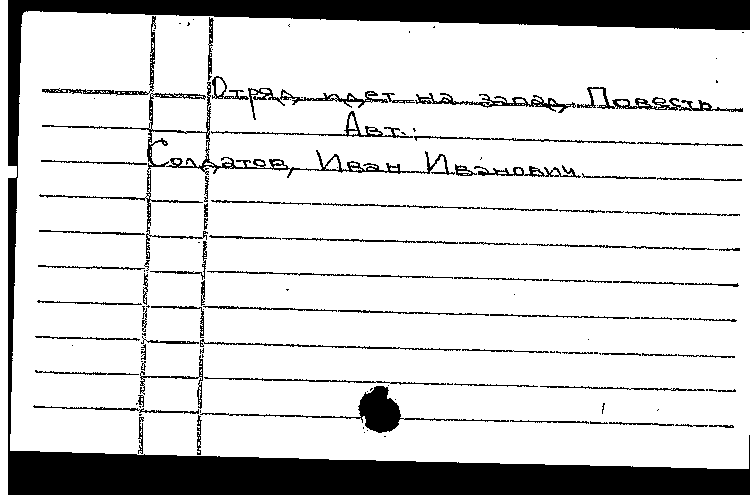 Отряд идет на запад. Повесть.
Авт.:
Солдатов, Иван Иванович.